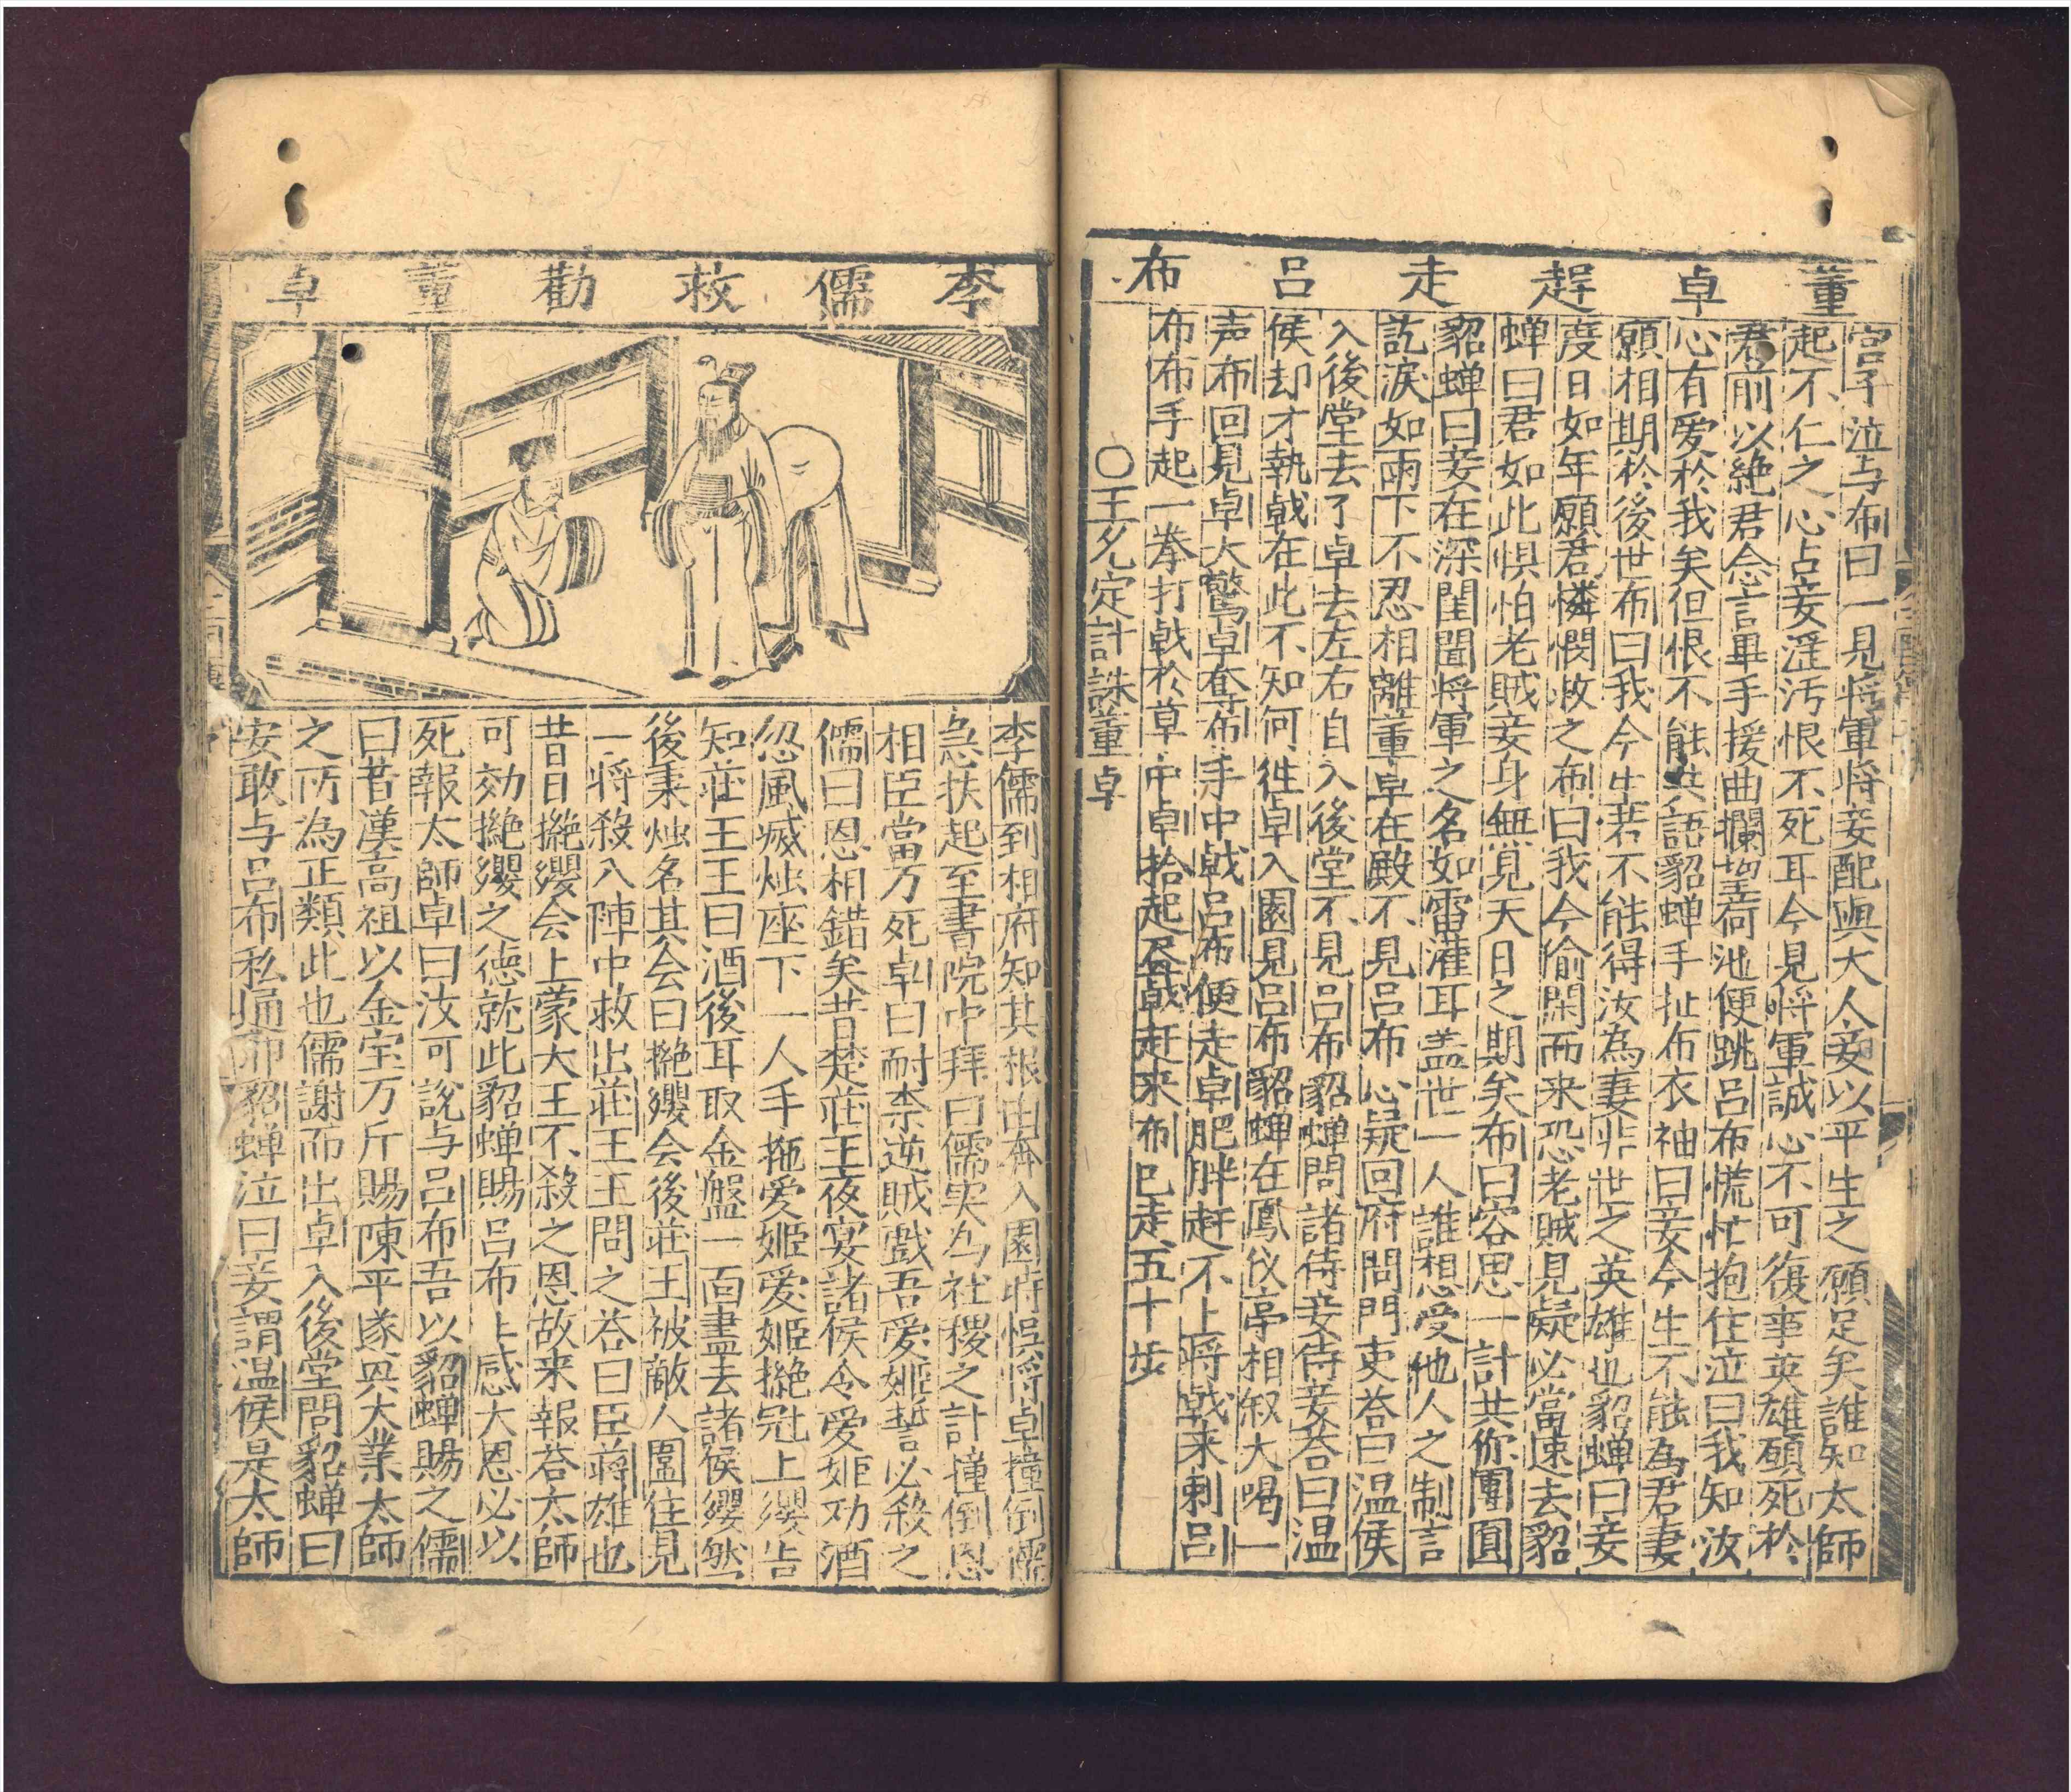 董卓趕走呂布
宫了泣与布曰一見将軍将妾配與大人妾以平生之願足矣誰知太師
起不仁之心占妾淫汚恨不死耳今見将軍誠心不可復事英雄碩死於
君前以絶君念言畢手援曲攔望荷池便跳吕布慌忙抱住泣曰我知汝
心有爱於我矣但恨不能共語貂蝉手扯布衣袖曰妾今生不能為君妻
願相期於後世布曰我今生若不能得汝為妻非世之英雄也貂蝉曰妾
度日如年願君憐憫救之布曰我今偷閑而来恐老賊見疑必當速去貂
蝉曰君如此惧怕老賊妾身無見天日之期矣布曰容思一計共你團圓
貂蝉曰妾在深閨聞将軍之名如雷灌耳盖世一人誰想受他人之制言
訖淚如雨下不忍相離董卓在殿不見吕布心疑回府問門吏荅曰温侯
入後堂去了卓去左右自入後堂不見吕布貂蝉問諸侍妾侍妾荅曰温
侯却才執戟在此不知何徃卓入園見吕布貂蝉在鳳仪亭相叙大喝一
声布回見卓大驚卓奪布手中戟吕布便走卓肥胖赶不上将戟来剌吕
布布手起一拳打戟於草中卓拾起尽戟赶来布已走五十步
○王允定計誅董卓
李儒救勸董卓
李儒到相府知其根由奔入園時悮将卓撞倒儒
急扶起至書院中拜曰儒実为社稷之計撞倒恩
相臣當万死卓曰耐柰逆賊戲吾愛姬誓必殺之
儒曰恩相錯矣昔楚莊王夜宴諸侯令爱姬劝酒
忽風滅烛座下一人手拖爱姬爱姬㧓冠上纓告
知莊王王曰酒後耳取金盤一面盡去諸侯纓然
後秉烛名其会曰㧓纓会後莊王被敵人圍住見
一将殺入陣中救出莊王王問之荅曰臣蒋雄也
昔日㧓纓会上蒙大王不殺之恩故来報荅太師
可効㧓纓之德就此貂蝉賜吕布上感大恩必以
死報太師卓曰汝可說与吕布吾以貂蝉賜之儒
曰昔漢高祖以金宝万斤賜陳平遂興大業太師
之所為正類此也儒謝而出卓入後堂問貂蝉曰
安敢与吕布私通耶貂蝉泣曰妾謂温侯是太師